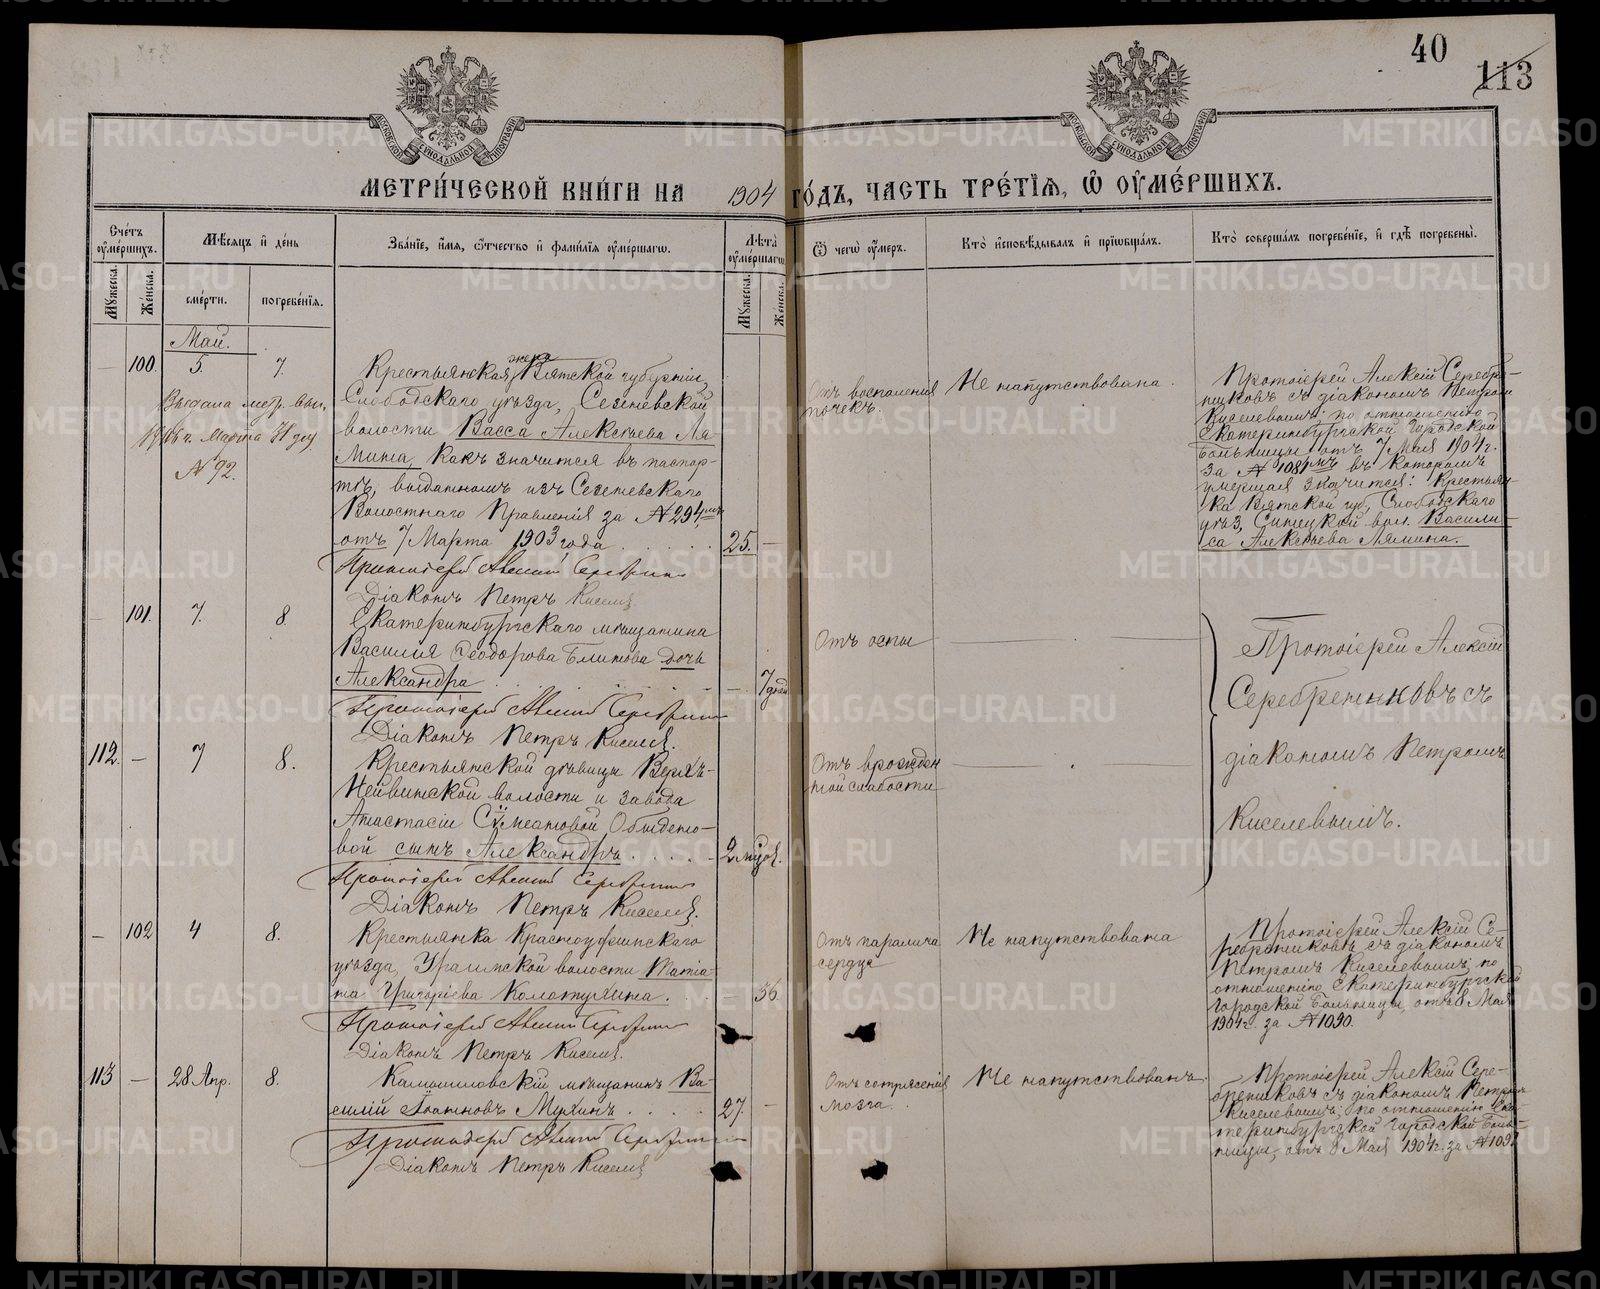 40
113
МЕТРИ́ЧЕСКОЙ КНИ́ГИ НА 1904 ГО́ДЪ, ЧАСТЬ ТРЕ́ТІѦ, Ѿ ОУМЕ́РШИХЪ.
Сче́тъ оумершихъ.
Мѣсяцъ и день
Зва́ніе, и́мя, о́тчество и фами́лія оуме́ршагω.
Лѣта оуме́ршагω
Ѿ чегω оу́меръ.
Кто̀ исповѣ́дывалъ и пріωбща́лъ.
Кто̀ соверша́лъ погребе́ніе, и гдѣ̀ погребены̀.
Мужеска.
Женска.
сме́рти.
погребе́нія.
Мужеска.
Женска.
Май.
— 100. 5. 7.
Выдана метр. вып.
1916 г. Марта 31 дня
№ 92.
Крестьянская жена Вятской губерніи,
Слободского уѣзда, Сезеневской
волости Васса Алексѣева Ля-
мина, какъ значится въ паспор-
тѣ, выданномъ изъ Сезеневскаго
Волостнаго Правленія за № 294
отъ 7 Марта 1903 года
25. —
Протоіерей Алексій
Діаконъ Петръ Киселев
Отъ воспаленія
почекъ.
Не напутствована.
Протоіерей Алексій Серебрен-
никовъ съ діакономъ Петромъ
Киселевымъ; по отношенію
Екатеринбургской Городской
Больницы отъ 7 Мая 1904 г.
за № 1084 въ которомъ
умершая значится: Крестьян-
ка Вятской губ, Слободского
уѣз, Синецкой вол. Васили-
са Алексѣева Лямина.
— 101. 7. 8.
Екатеринбургскаго мѣщанина
Василія Ѳеодорова Блинова дочь
Александра
— 7 дней
Протоіерей Алексій
Діаконъ Петръ Киселев.
Отъ оспы
Протоіерей Алексій
Серебренниковъ съ
діакономъ Петромъ
Киселевымъ.
112. — 7 8.
Крестьянской дѣвицы Верхъ-
Нейвинской волости и завода
Анастасіи Сѵмеоновой Обыдено-
вой сынъ Александръ
2 мѣсяц.
Протоіерей Алексій
Діаконъ Петръ Киселев.
Отъ врожден
ной слабости
— 102 4 8.
Крестьянка Красноуфимскаго
уѣзда, Ураимской волости Татіа-
на Григоріева Колотухина.
— 36
Протоіерей Алексій
Діаконъ Петръ Киселев.
Отъ паралича
сердца
Не напутствована
Протоіерей Алексій Се-
ребрениковъ съ діакономъ
Петромъ Киселевымъ; по
отношенію Екатеринбургской
Городской Больницы, отъ 8 Мая
1904 г. за № 1090.
113 — 28 Апр. 8.
Камышловскій мѣщанинъ Ва-
силій Іоанновъ Мухинъ
27. —
Протоіерей Алексій
Діаконъ Петръ Киселев
Отъ сотрясенія
мозга.
Не напутствованъ.
Протоіерей Алексій Сере-
брениковъ съ діакономъ Петромъ
Киселевымъ; по отношенію Ека-
теринбургской Городской Боль-
ницы, отъ 8 Мая 1904 г. за № 1092
METRIKI.GASO-URAL.RU